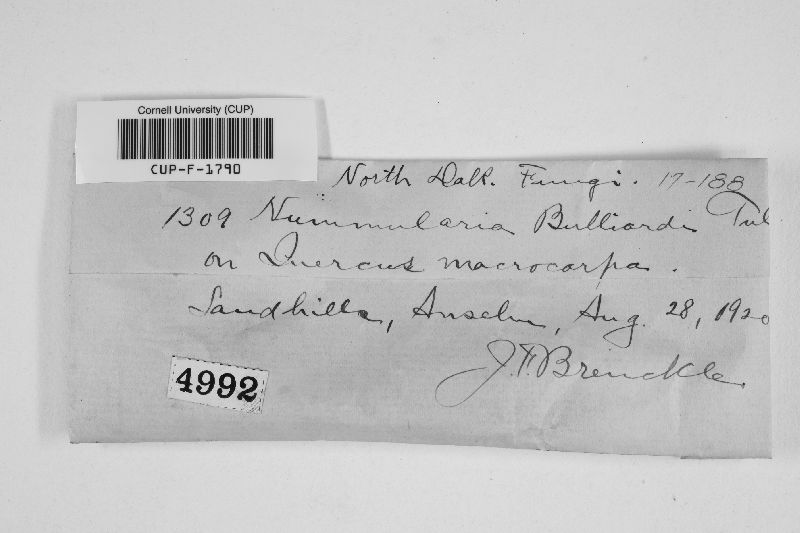 Cornell University (CUP)
CUP-F-1790
North Dak. Fungi. 17-188
1309 Nummularia Bulliardi Tul
on Quercus macrocarpa.
Sandhills, Anselm, Aug. 28, 1920
J.F. Brenckle
4992